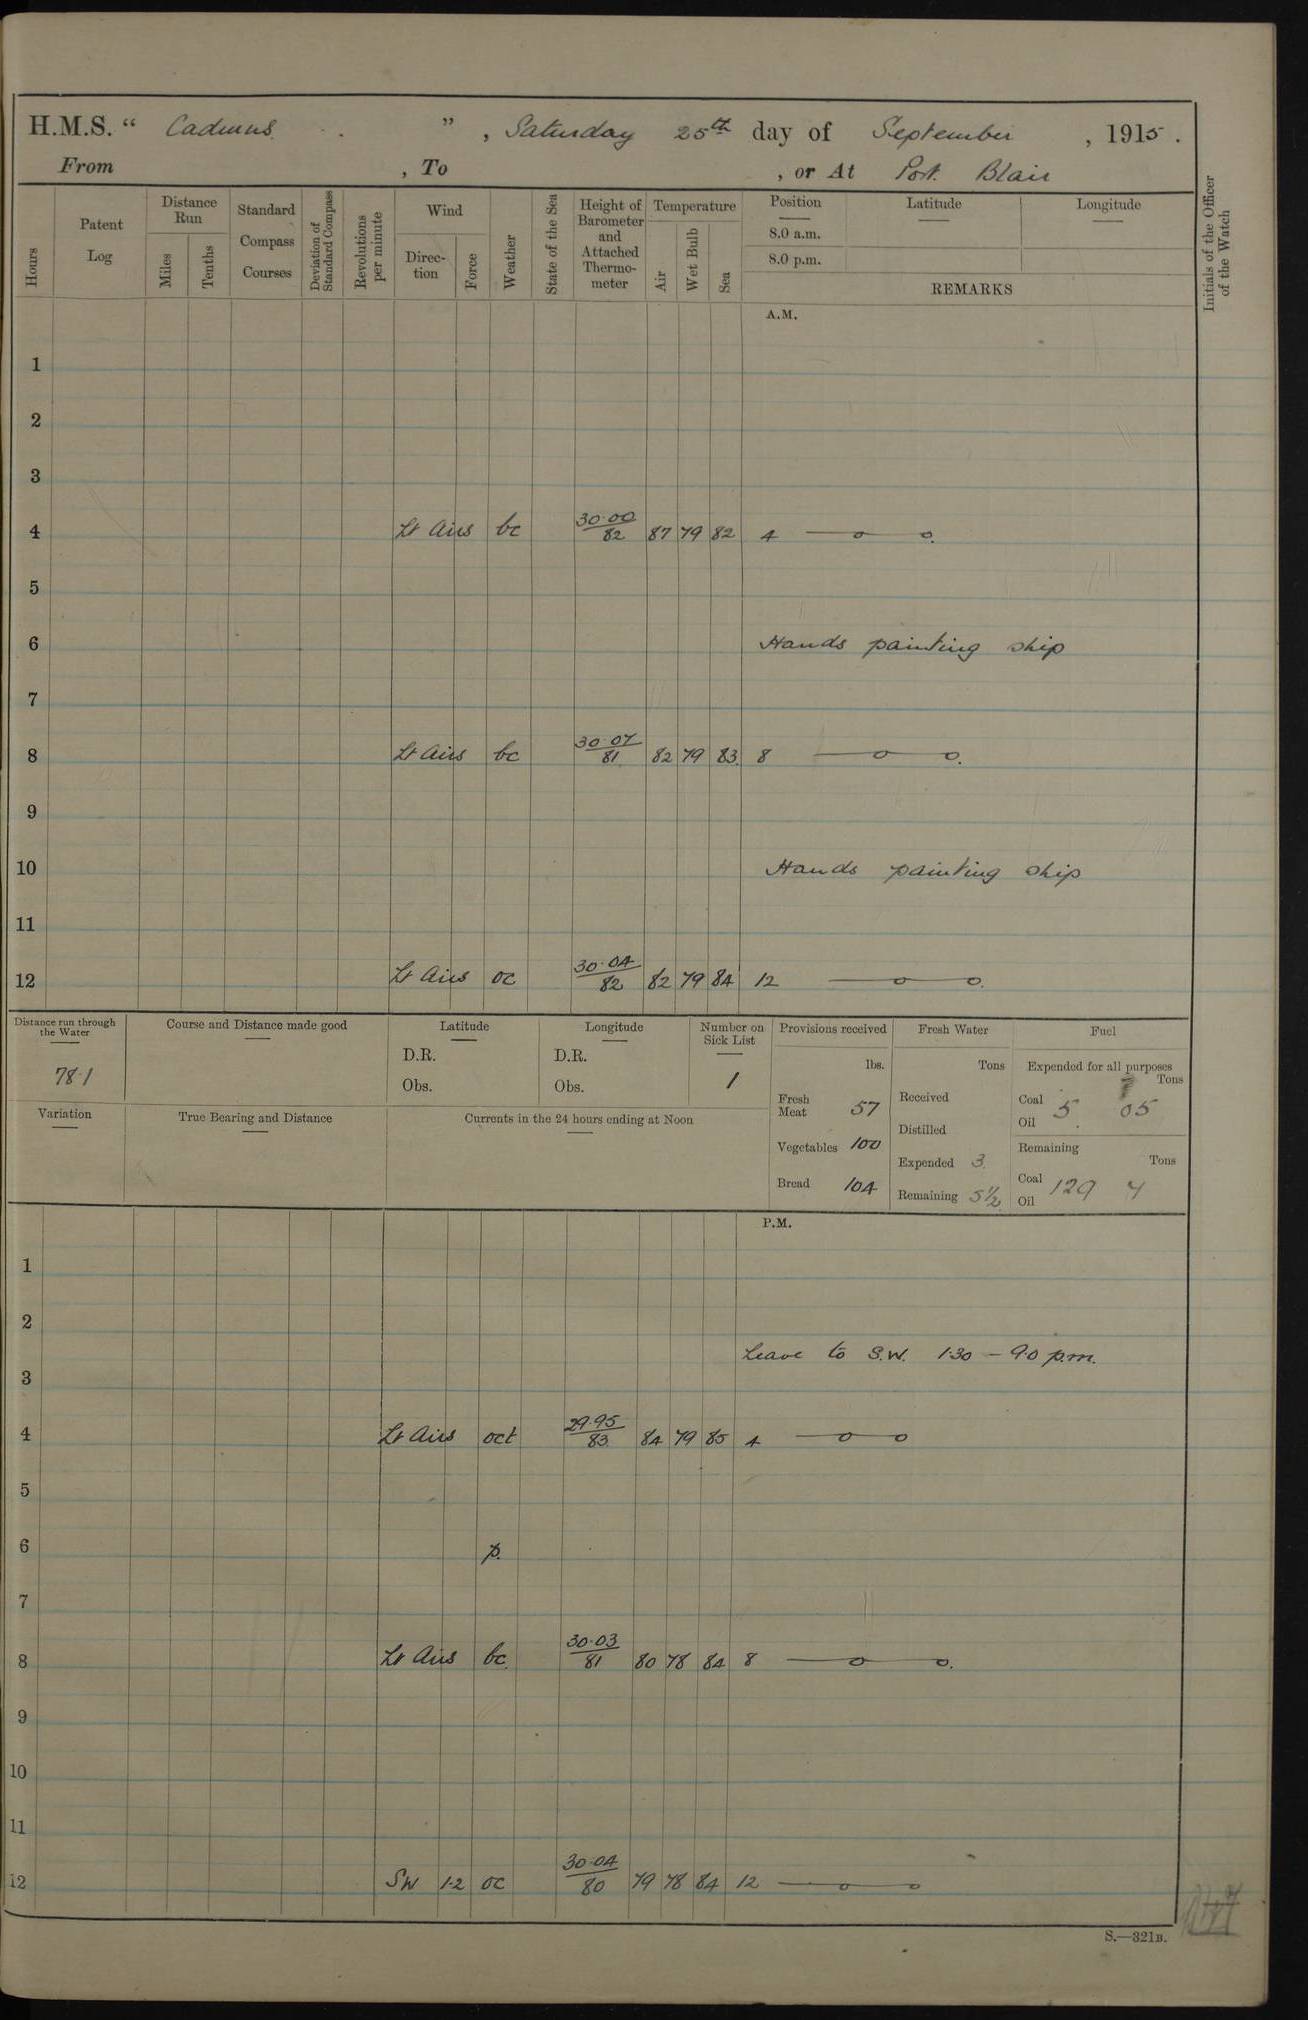 H.M.S. “ Cadmus ” , Saturday 25th day of September , 1915 .
From , To , or At Port Blair
Hours
Patent Log
Distance Run
Miles
Tenths
Standard Compass Courses
Deviation of Standard Compass
Revolutions per minute
Wind
Direc- tion
Force
Weather
State of the Sea
Height of Barometer and Attached Thermo- meter
Temperature
Air
Wet Bulb
Sea
Position
8.0 a.m.
8.0 p.m.
Latitude
Longitude
REMARKS
Initials of the Officer of the Watch
A.M.
1
2
3
4 Lt Airs bc 30.00 82 87 79 82 4
5
6 Hands painting ship
7
8 Lt Airs bc 30.07 81 82 79 83 8
9
10 Hands painting ship
11
12 Lt Airs oc 30.04 82 82 79 84 12
Distance run through the Water
78.1
Course and Distance made good
Latitude
D.R.
Obs.
Longitude
D.R.
Obs.
Number on Sick List
1
Variation
True Bearing and Distance
Currents in the 24 hours ending at Noon
Provisions received
lbs.
Fresh Meat 57
Vegetables 100
Bread 104
Fresh Water
Tons
Received
Distilled
Expended 3
Remaining 5 1/2
Fuel
Expended for all purposes
Tons
Coal 5 05
Oil
Remaining
Tons
Coal 129
Oil
P.M.
1
2
Leave to S.W. 1.30 – 9.0 p.m.
3
4 Lt Airs oct 29.95 83 84 79 85 4
5
6 p.
7
8 Lt Airs bc 30.03 81 80 78 84 8
9
10
11
12 SW 1-2 oc 30.04 80 79 78 84 12
S.—321B.